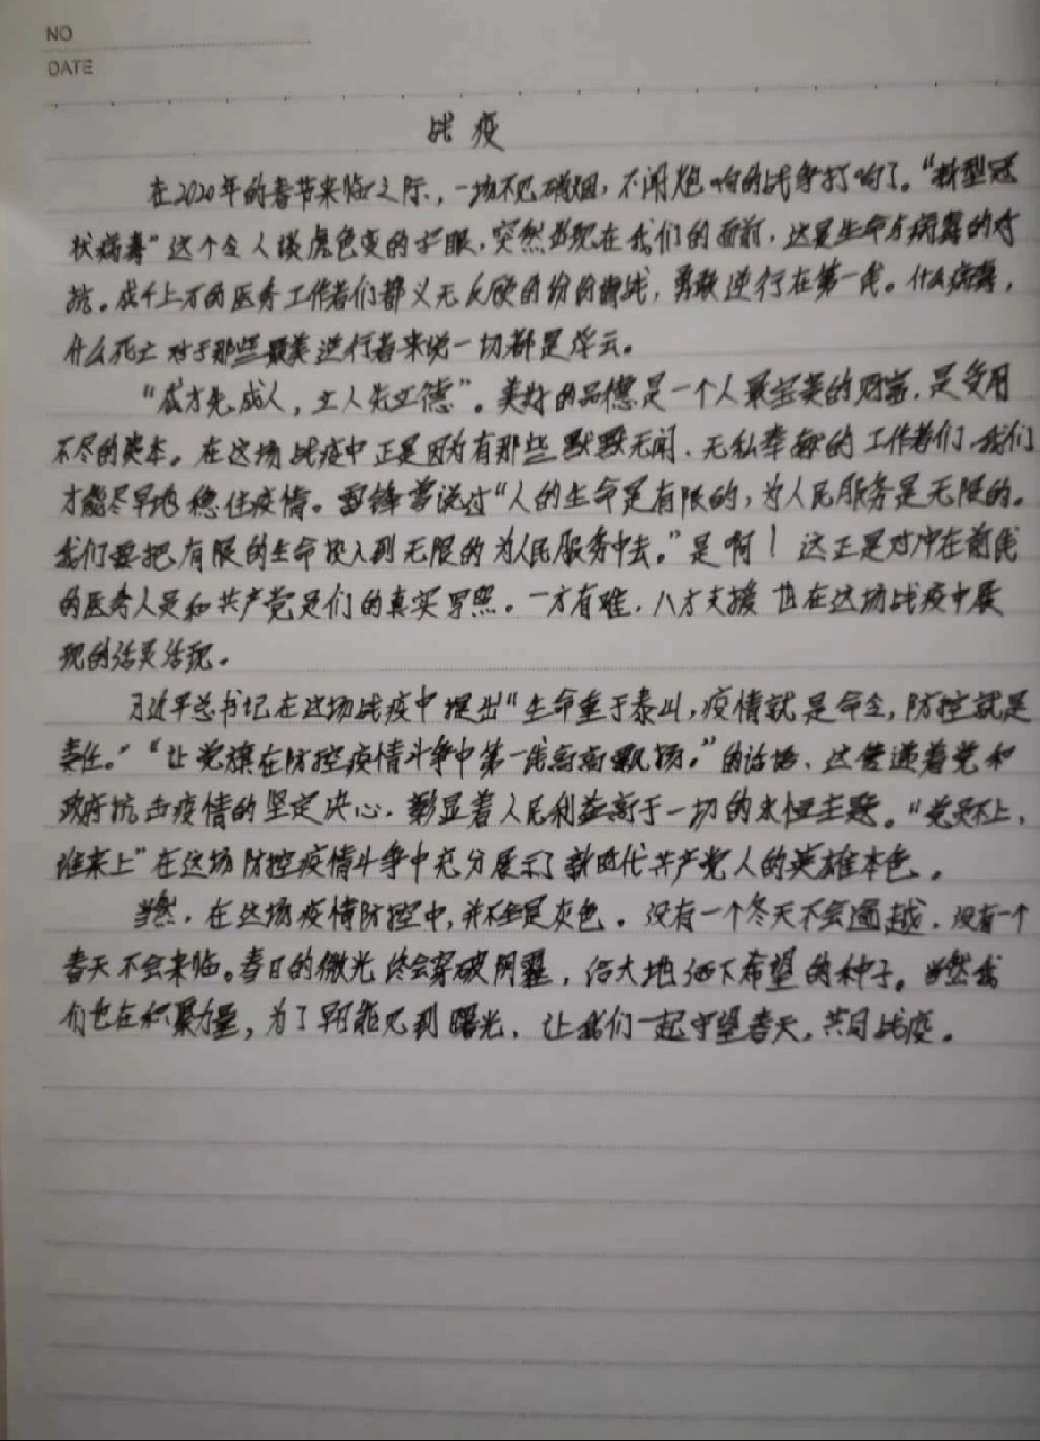 NO
DATE
战疫
在2020年的春节来临之际，一场不见硝烟，不闻炮响的战争打响了。“新型冠
状病毒”这个令人谈虎色变的字眼，突然出现在我们的面前，这是生命与病毒的对
抗。成千上万的医务工作者们都义无反顾的纷纷请战，勇敢逆行在第一线。什么病毒，
什么死亡对于那些最美逆行者来说一切都是浮云。
“成才先成人，立人先立德”。美好的品德是一个人最宝贵的财富，是受用
不尽的资本。在这场战疫中正是因为有那些默默无闻、无私奉献的工作者们，我们
才能尽早地稳住疫情。雷锋曾说过“人的生命是有限的，为人民服务是无限的。
我们要把有限的生命投入到无限的为人民服务中去。”是啊！这正是对冲在前线
的医务人员和共产党员们的真实写照。一方有难，八方支援也在这场战疫中展
现的活灵活现。
习近平总书记在这场战疫中提出“生命重于泰山，疫情就是命令，防控就是
责任。”“让党旗在防控疫情斗争中第一线高高飘扬。”的话语，这传递着党和
政府抗击疫情的坚定决心，彰显着人民利益高于一切的永恒主题。“党员不上，
谁来上”在这场防控疫情斗争中充分展示了新时代共产党人的英雄本色。
当然，在这场疫情防控中，并不全是灰色。没有一个冬天不会逾越，没有一个
春天不会来临。春日的微光终会穿破阴霾，给大地洒下希望的种子。当然我
们也在积聚力量，为了早日能见到曙光，让我们一起守望春天，共同战疫。